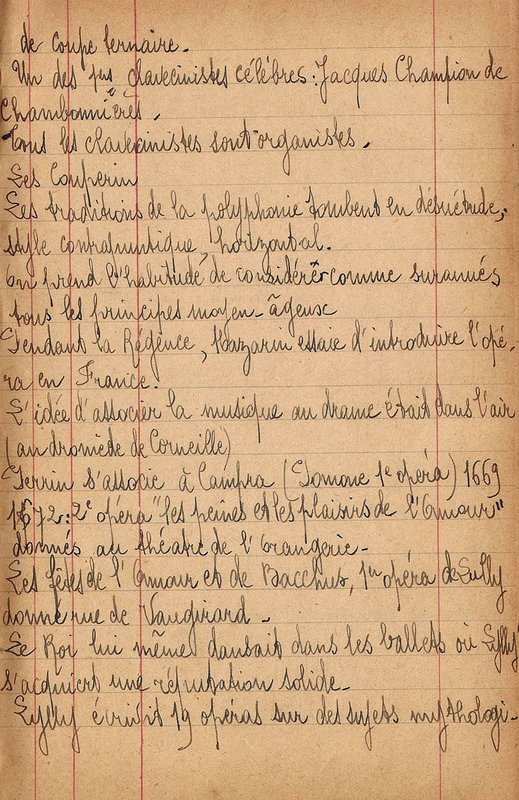 de coupe ternaire.
Un des 1ers clavecinistes célèbres : Jacques Champion de
Chambonnières.
Tous les clavecinistes sont organistes.
Les Couperin
Les traditions de la polyphonie tombent en désuétude,
style contrapuntique, horizontal.
On prend l'habitude de considérer comme surannés
tous les principes moyen-âgeux
Pendant la Régence, Mazarin essaie d'introduire l'opé-
ra en France.
L'idée d'associer la musique au drame était dans l'air
(andromède de Corneille)
Perrin s'associe à Campra (Pomone 1e opéra) 1669
1672 : 2e opéra "les peines et les plaisirs de l'Amour"
donnés au théâtre de l'Orangerie-
Les fêtes de l'Amour et de Bacchus, 1er opéra de Lully
donné rue de Vaugirard.
Le Roi lui même dansait dans les ballets où Lully
s'acquiert une réputation solide-
Lully écrivit 19 opéras sur des sujets mythologi-